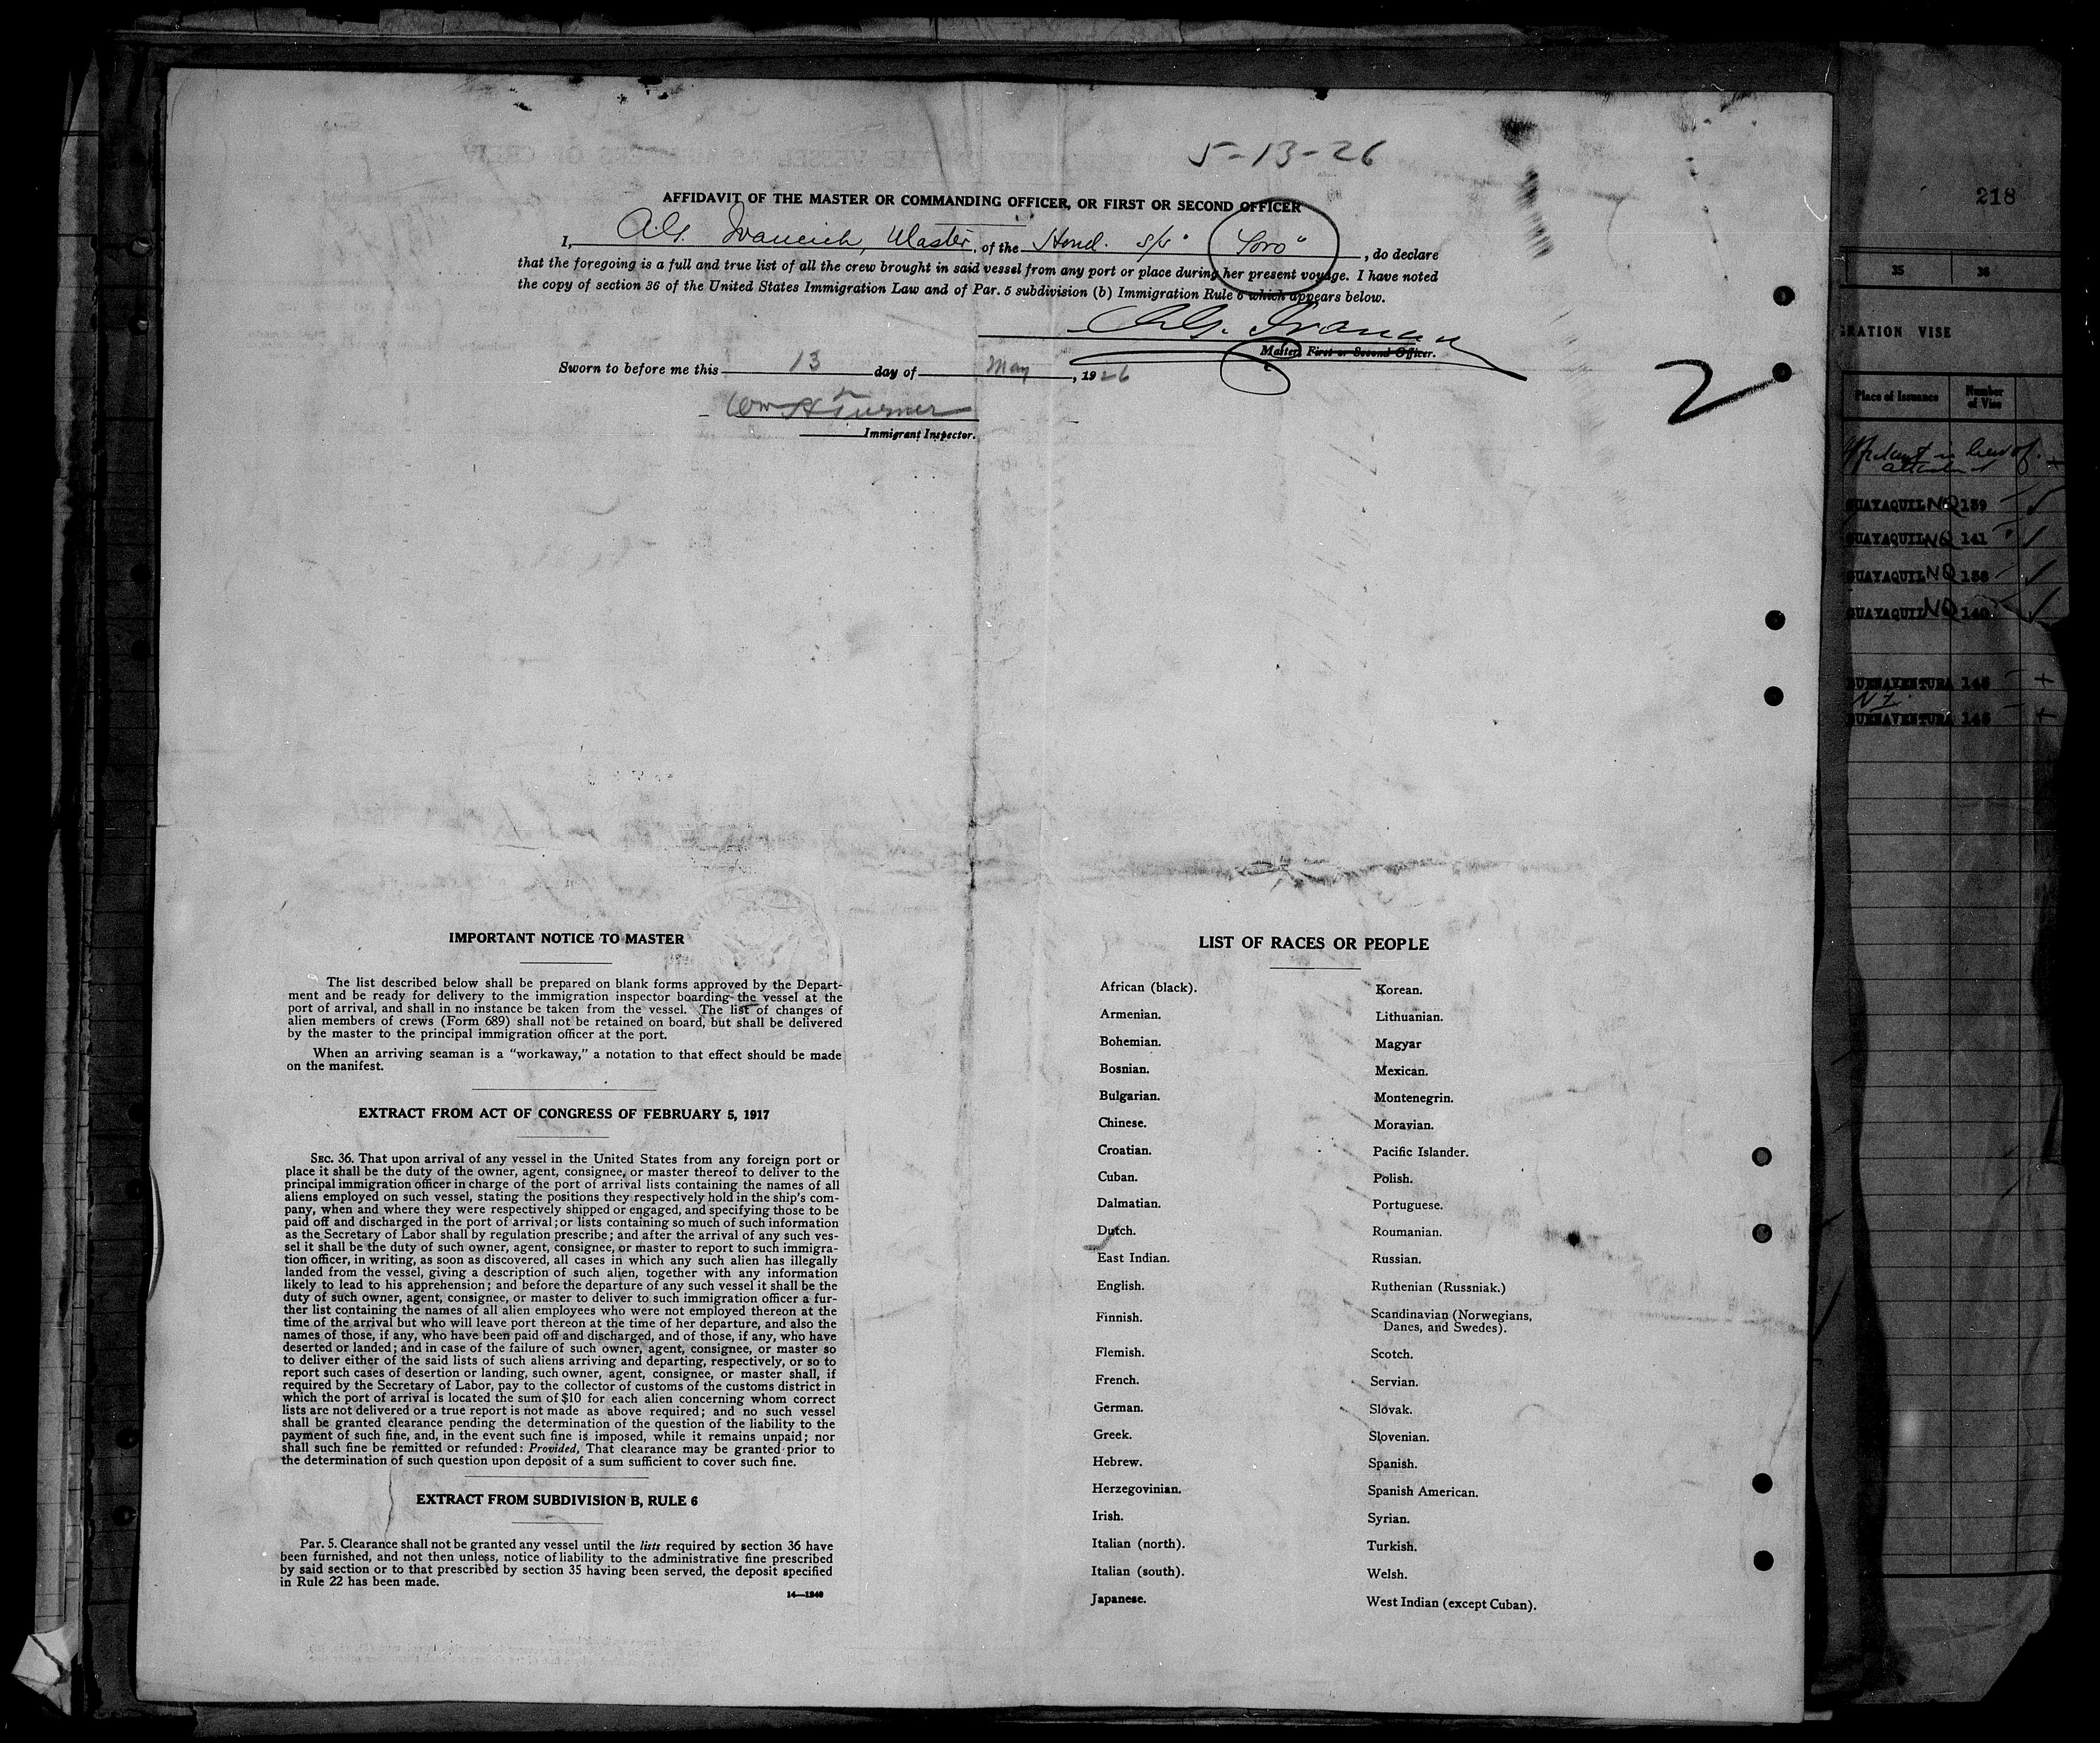 5-13-26
AFFIDAVIT OF THE MASTER OR COMMANDING OFFICER, OR FIRST OR SECOND OFFICER
I, A.G. Ivancich, Master, of the Hond. s/s "Toro", do declare
that the foregoing is a full and true list of all the crew brought in said vessel from any port or place during her present voyage. I have noted
the copy of section 36 of the United States Immigration Law and of Par. 5 subdivision (b) Immigration Rule 6 which appears below.
Master, First or Second Officer.
Sworn to before me this 13 day of May, 1926
Wm H Turner
Immigrant Inspector.
2
IMPORTANT NOTICE TO MASTER
The list described below shall be prepared on blank forms approved by the Depart-
ment and be ready for delivery to the immigration inspector boarding the vessel at the
port of arrival, and shall in no instance be taken from the vessel. The list of changes of
alien members of crews (Form 689) shall not be retained on board, but shall be delivered
by the master to the principal immigration officer at the port.
When an arriving seaman is a "workaway," a notation to that effect should be made
on the manifest.
EXTRACT FROM ACT OF CONGRESS OF FEBRUARY 5, 1917
SEC. 36. That upon arrival of any vessel in the United States from any foreign port or
place it shall be the duty of the owner, agent, consignee, or master thereof to deliver to the
principal immigration officer in charge of the port of arrival lists containing the names of all
aliens employed on such vessel, stating the positions they respectively hold in the ship's com-
pany, when and where they were respectively shipped or engaged, and specifying those to be
paid off and discharged in the port of arrival; or lists containing so much of such information
as the Secretary of Labor shall by regulation prescribe; and after the arrival of any such ves-
sel it shall be the duty of such owner, agent, consignee, or master to report to such immigra-
tion officer, in writing, as soon as discovered, all cases in which any such alien has illegally
landed from the vessel, giving a description of such alien, together with any information
likely to lead to his apprehension; and before the departure of any such vessel it shall be the
duty of such owner, agent, consignee, or master to deliver to such immigration officer a fur-
ther list containing the names of all alien employees who were not employed thereon at the
time of the arrival but who will leave port thereon at the time of her departure, and also the
names of those, if any, who have been paid off and discharged, and of those, if any, who have
deserted or landed; and in case of the failure of such owner, agent, consignee, or master so
to deliver either of the said lists of such aliens arriving and departing, respectively, or so to
report such cases of desertion or landing, such owner, agent, consignee, or master shall, if
required by the Secretary of Labor, pay to the collector of customs of the customs district in
which the port of arrival is located the sum of $10 for each alien concerning whom correct
lists are not delivered or a true report is not made as above required; and no such vessel
shall be granted clearance pending the determination of the question of the liability to the
payment of such fine, and, in the event such fine is imposed, while it remains unpaid; nor
shall such fine be remitted or refunded: Provided, That clearance may be granted prior to
the determination of such question upon deposit of a sum sufficient to cover such fine.
EXTRACT FROM SUBDIVISION B, RULE 6
Par. 5. Clearance shall not be granted any vessel until the lists required by section 36 have
been furnished, and not then unless, notice of liability to the administrative fine prescribed
by said section or to that prescribed by section 35 having been served, the deposit specified
in Rule 22 has been made.
14—1240
LIST OF RACES OR PEOPLE
African (black).
Armenian.
Bohemian.
Bosnian.
Bulgarian.
Chinese.
Croatian.
Cuban.
Dalmatian.
Dutch.
East Indian.
English.
Finnish.
Flemish.
French.
German.
Greek.
Hebrew.
Herzegovinian.
Irish.
Italian (north).
Italian (south).
Japanese.
Korean.
Lithuanian.
Magyar
Mexican.
Montenegrin.
Moravian.
Pacific Islander.
Polish.
Portuguese.
Roumanian.
Russian.
Ruthenian (Russniak.)
Scandinavian (Norwegians,
Danes, and Swedes).
Scotch.
Servian.
Slovak.
Slovenian.
Spanish.
Spanish American.
Syrian.
Turkish.
Welsh.
West Indian (except Cuban).
218
35 36
RATION VISE
Place of Issuance Number of Vise
GUAYAQUIL NQ 139
GUAYAQUIL NQ 141
GUAYAQUIL NQ 138
GUAYAQUIL NQ 140
BUENAVENTURA 145
BUENAVENTURA 146